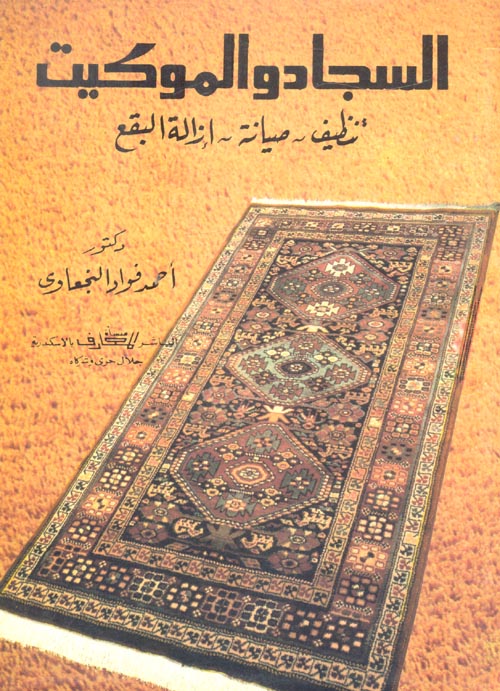 السجاد والموكيت
تنظيف - صيانة - إزالة البقع
دكتور
أحمد فؤاد النجعاوى
الناشر منشأة المعارف بالاسكندرية
جلال حزى وشركاه